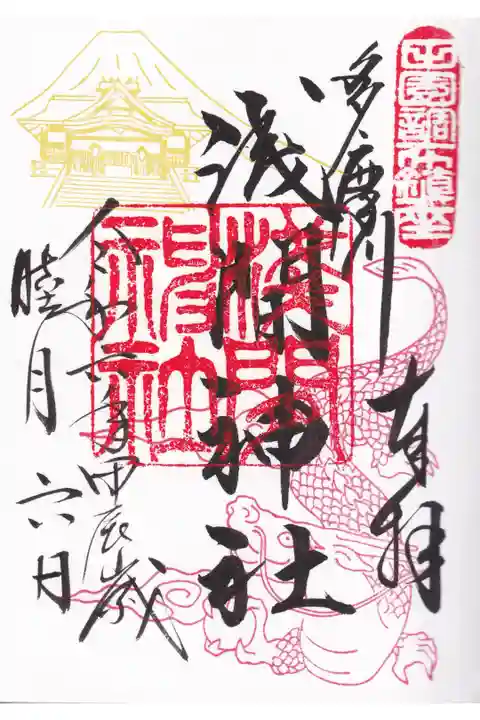 田園調布鎮座
多摩川
奉拝
浅間神社
浅間神社
令和六年甲辰歳
睦月六日